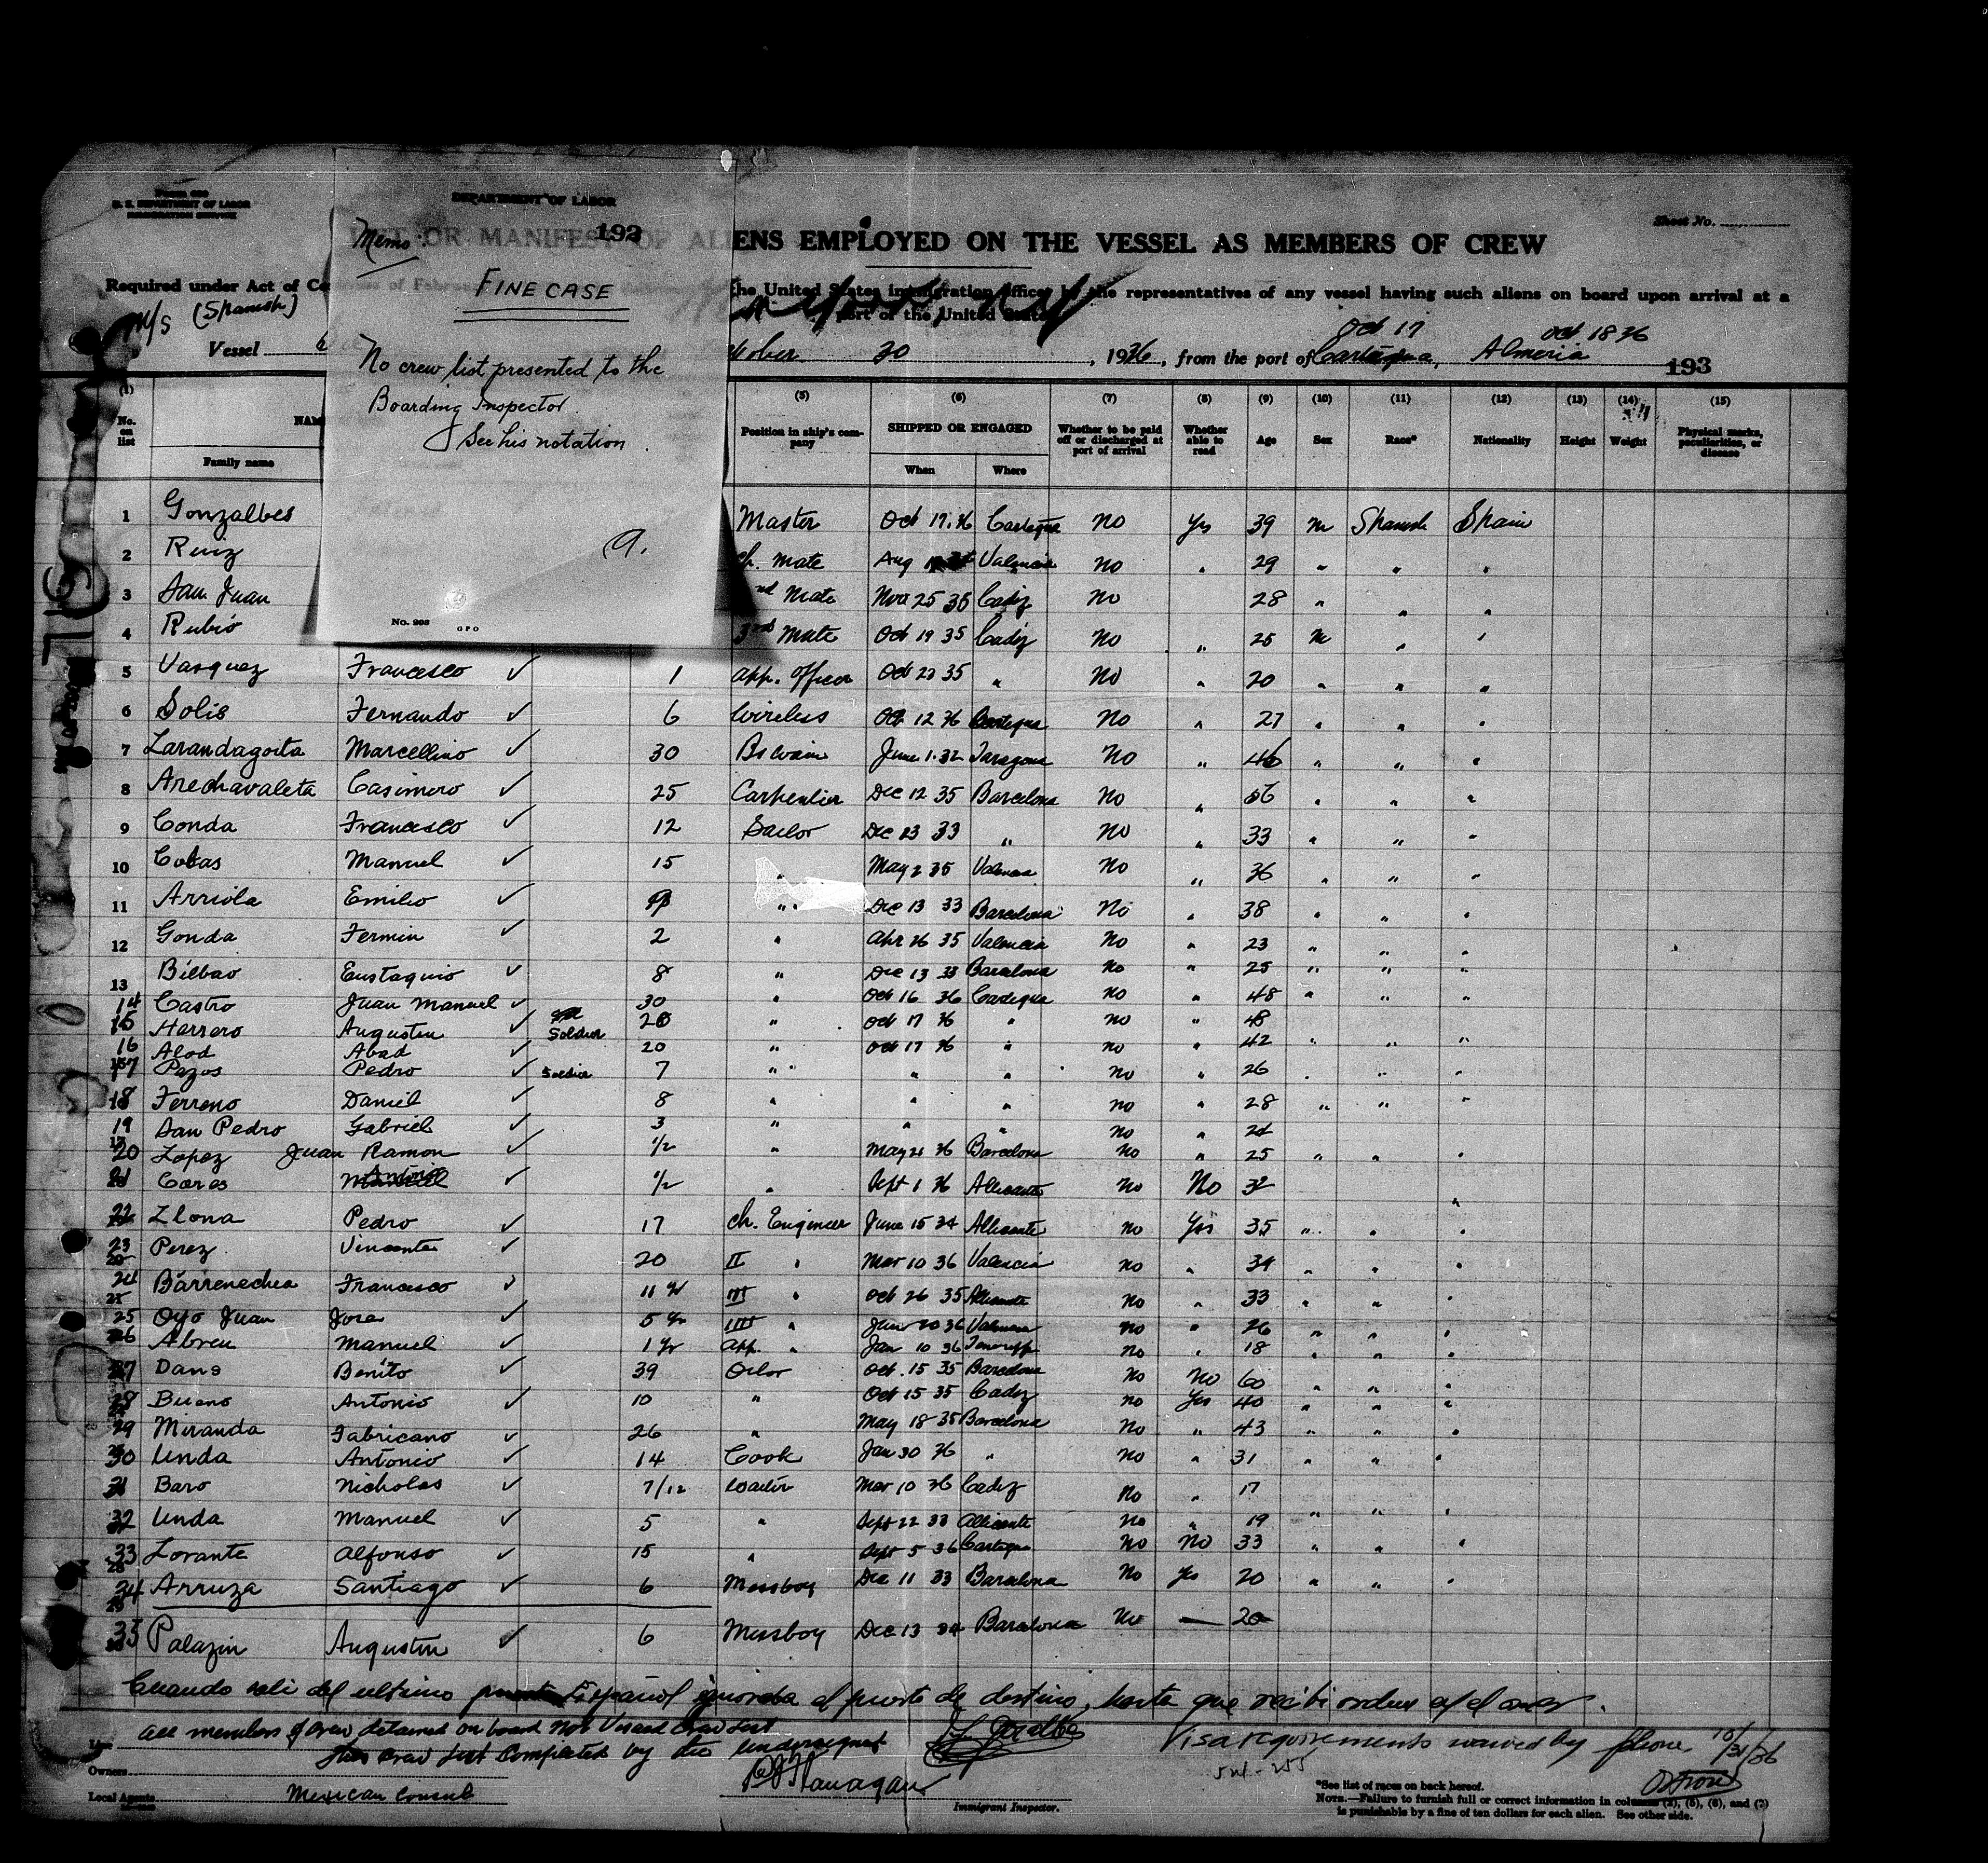 Form 680
U. S. DEPARTMENT OF LABOR
IMMIGRATION SERVICE
Sheet No.
DEPARTMENT OF LABOR
192
Memo
FINE CASE
No crew list presented to the
Boarding Inspector.
See his notation.
No. 203
GPO
LIST OR MANIFEST OF ALIENS EMPLOYED ON THE VESSEL AS MEMBERS OF CREW
Required under Act of Congress of February the United States immigration officer by the representatives of any vessel having such aliens on board upon arrival at a
port of the United States
M/S (Spanish)
Oct 17 Oct 18 36
Vessel tober 30, 1936, from the port of Cartegna, Almeria
193
(1) (5) (6) (7) (8) (9) (10) (11) (12) (13) (14) (15)
No. on list
Family name
Position in ship's company
SHIPPED OR ENGAGED
When Where
Whether to be paid off or discharged at port of arrival
Whether able to read
Age
Sex
Race*
Nationality
Height
Weight
Physical marks, peculiarities, or disease
1 Gonzalbes Master Oct 17.36 Cartegna No Yes 39 m Spanish Spain
2 Ruiz Ch. Mate Aug Valencia No " 29 " " "
3 San Juan 2nd Mate Nov 25 35 Cadiz No 28 " " "
4 Rubio 3rd Mate Oct 19 35 Cadiz No " 25 m " "
5 Vasquez Francesco ✓ 1 App. Officer Oct 23 35 " No " 20 " " "
6 Solis Fernando ✓ 6 Wireless Oct 12 36 Cartegna No " 27 " " "
7 Larandagoita Marcellino ✓ 30 Bswain June 1.32 Taragona No " 46 " " "
8 Arechavaleta Casimero ✓ 25 Carpentier Dec 12 35 Barcelona No " 56 " " "
9 Conda Francesco ✓ 12 Sailor Dec 23 33 " No " 33 " " "
10 Cobas Manuel ✓ 15 " May 2 35 Valencia No " 36 " " "
11 Arriola Emilio ✓ 9 " Dec 13 33 Barcelona No " 38 " " "
12 Gonda Fermin ✓ 2 " Apr 26 35 Valencia No " 23 " " "
13 Bilbao Eustaquio ✓ 8 " Dec 13 33 Barcelona No " 25 " " "
14 Castro Juan Manuel ✓ 30 " Oct 16 36 Cartegna No " 48 " " "
15 Herrero Augustin ✓ Soldier 20 " Oct 17 36 " No " 48
16 Alod Abad ✓ 20 " Oct 17 36 " No " 42 " " "
17 Pazos Pedro ✓ Soldier 7 " " " No " 26 " " "
18 Ferreno Daniel ✓ 8 " " " No " 28 " " "
19 San Pedro Gabriel ✓ 3 " " " No " 24
20 Lopez Juan Ramon ✓ 1/2 " May 21 36 Barcelona No " 25 " " "
21 Cores Antonio ✓ 1/2 " Sept 1 36 Allicante No No 32 "
22 Llona Pedro ✓ 17 Ch. Engineer June 15 34 Allicante No Yes 35 " " "
23 Perez Vincente ✓ 20 II " Mar 10 36 Valencia No " 34 " " "
24 Barrenechea Francesco ✓ 11 yr III " Oct 26 35 Allicante No " 33 " " "
25 Oyo Juan Jose ✓ 5 yr IIII " Jun 20 36 Valencia No " 26 " " "
26 Abreu Manuel ✓ 1 yr App. " Jan 10 36 No " 18 " " "
27 Dans Benito ✓ 39 Oilor Oct. 15 35 Barcelona No No 60 " " "
28 Bueno Antonio ✓ 10 " Oct 15 35 Cadiz No Yes 40 " " "
29 Miranda Fabricano ✓ 26 " May 18 35 Barcelona No " 43 " " "
30 Unda Antonio ✓ 14 Cook Jan 30 36 " No " 31 " " "
31 Baro Nicholas ✓ 7/12 Waiter Mar 10 36 Cadiz No " 17
32 Unda Manuel ✓ 5 " Sept 22 33 Allicante No " 19 " " "
33 Lorante Alfonso ✓ 15 " Sept 5 36 Cartegna No No 33 " " "
34 Arruza Santiago ✓ 6 Messboy Dec 11 33 Barcelona No Yes 20 " " "
35 Palazin Augustin ✓ 6 Messboy Dec 13 34 Barcelona No — 20
Cuando sali del ultimo Español ignoraba el puerto de destino, hasta que recibi ordenes
All members of crew detained on board Not Visaed Crew List
This crew list completed by the undersigned
Visa requirements waived by phone 10/31/36
Line
Owners
Local Agents Mexican Consul
Flanagan
Immigrant Inspector.
*See list of races on back hereof.
NOTE.—Failure to furnish full or correct information in columns (2), (5), (6), and (7)
is punishable by a fine of ten dollars for each alien. See other side.